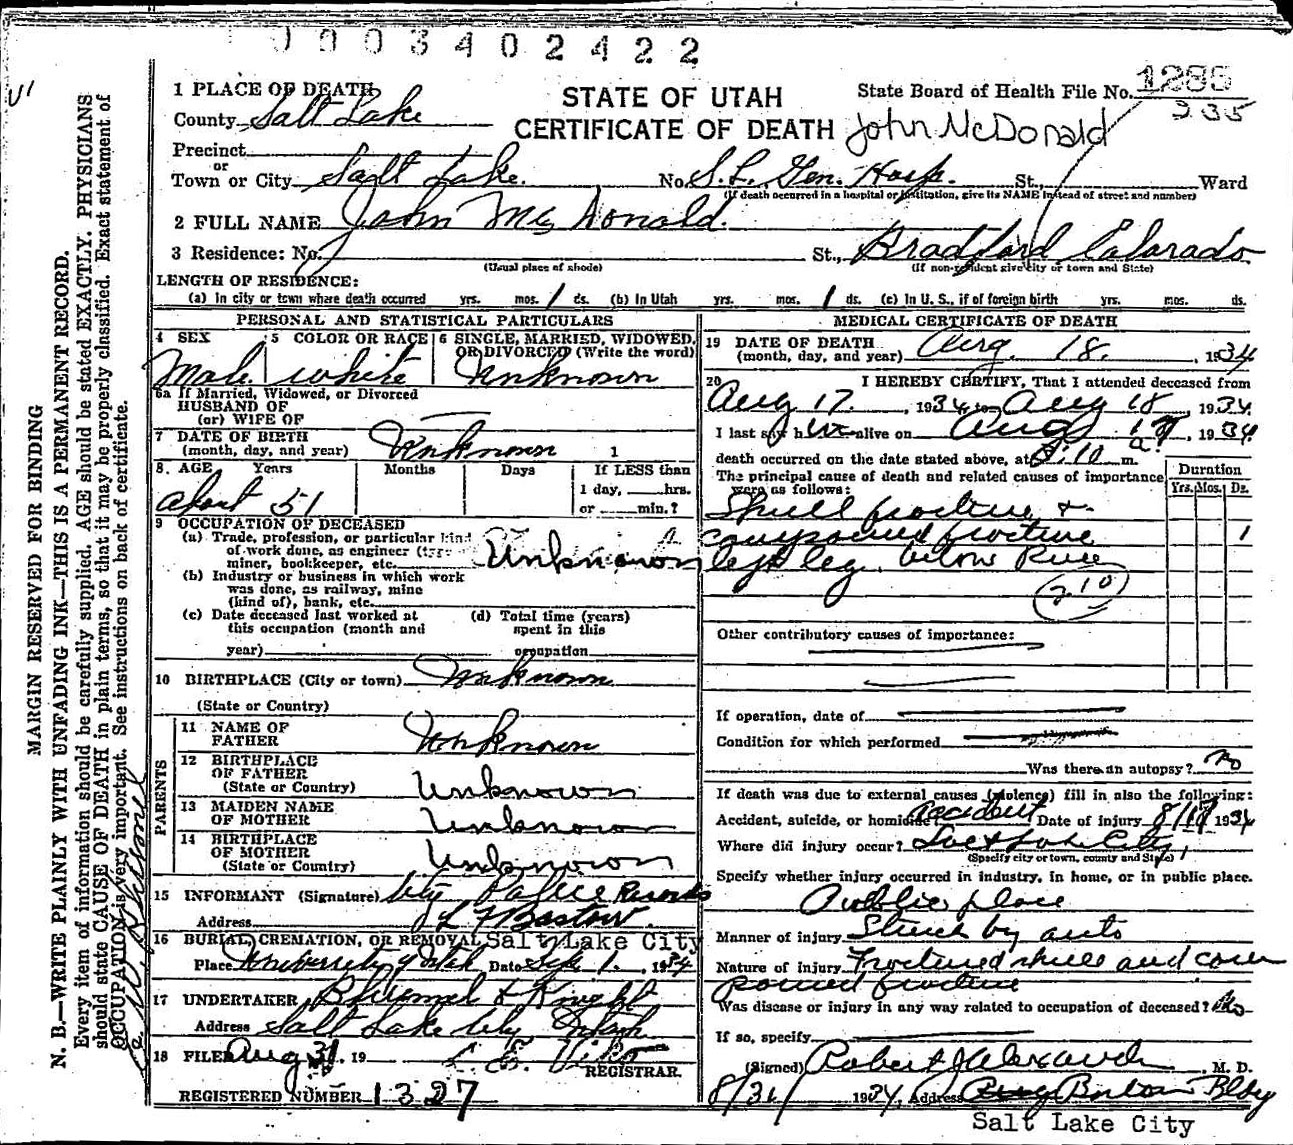 0003402422
1285
235
1 PLACE OF DEATH
County Salt Lake
STATE OF UTAH
CERTIFICATE OF DEATH
State Board of Health File No.
John McDonald
Precinct
or
Town or City Salt Lake. No. S. L. Gen. Hosp. St., Ward
(If death occurred in a hospital or institution, give its NAME instead of street and number)
2 FULL NAME John Mc Donald.
3 Residence: No. St., Bradford Colorado
(Usual place of abode) (If non-resident give city or town and State)
LENGTH OF RESIDENCE:
(a) In city or town where death occurred yrs. mos. 1 ds. (b) In Utah yrs. mos. 1 ds. (c) In U. S., if of foreign birth yrs. mos. ds.
PERSONAL AND STATISTICAL PARTICULARS
4 SEX 5 COLOR OR RACE 6 SINGLE, MARRIED, WIDOWED, OR DIVORCED (Write the word)
Male white Unknown
6a If Married, Widowed, or Divorced
HUSBAND OF
(or) WIFE OF
7 DATE OF BIRTH
(month, day, and year) Unknown 1
8. AGE Years Months Days If LESS than
1 day, hrs.
or min.?
about 51
9 OCCUPATION OF DECEASED
(a) Trade, profession, or particular kind
of work done, as engineer
miner, bookkeeper, etc. Unknown
(b) Industry or business in which work
was done, as railway, mine
(kind of), bank, etc.
(c) Date deceased last worked at
this occupation (month and
year)
(d) Total time (years)
spent in this
occupation
10 BIRTHPLACE (City or town) Unknown
(State or Country)
PARENTS
11 NAME OF
FATHER Unknown
12 BIRTHPLACE
OF FATHER
(State or Country) Unknown
13 MAIDEN NAME
OF MOTHER Unknown
14 BIRTHPLACE
OF MOTHER
(State or Country) Unknown
15 INFORMANT (Signature) City Police Records
Address L F Bastow
16 BURIAL, CREMATION, OR REMOVAL Salt Lake City
Place University of Utah Date Sep 1. 1934
17 UNDERTAKER
Address Salt Lake City Utah
18 FILED Aug 31. 19
REGISTRAR.
REGISTERED NUMBER 1327
MEDICAL CERTIFICATE OF DEATH
19 DATE OF DEATH
(month, day, and year) Aug. 18. , 1934
20 I HEREBY CERTIFY, That I attended deceased from
Aug 17. , 1934, to Aug 18 , 1934.
I last saw him alive on Aug 17, 1934
death occurred on the date stated above, at 8:10 a m.
The principal cause of death and related causes of importance
were as follows:
Duration
Yrs. Mos. Ds.
Skull fracture &
compound fracture 1
left leg. below knee
210
Other contributory causes of importance:
If operation, date of
Condition for which performed
Was there an autopsy? no
If death was due to external causes (violence) fill in also the following:
Accident, suicide, or homicide? accident Date of injury 8/17 1934
Where did injury occur? Salt Lake City
(Specify city or town, county and State)
Specify whether injury occurred in industry, in home, or in public place.
Public place
Manner of injury Struck by auto
Nature of injury Fractured skull and com
pound fracture
Was disease or injury in any way related to occupation of deceased? No
If so, specify
(Signed) Robert J Alexander , M. D.
8/31/ 1934, Address Boston Bldg
Salt Lake City
MARGIN RESERVED FOR BINDING
N. B.—WRITE PLAINLY WITH UNFADING INK—THIS IS A PERMANENT RECORD.
Every item of information should be carefully supplied. AGE should be stated EXACTLY. PHYSICIANS
should state CAUSE OF DEATH in plain terms, so that it may be properly classified. Exact statement of
OCCUPATION is very important. See instructions on back of certificate.